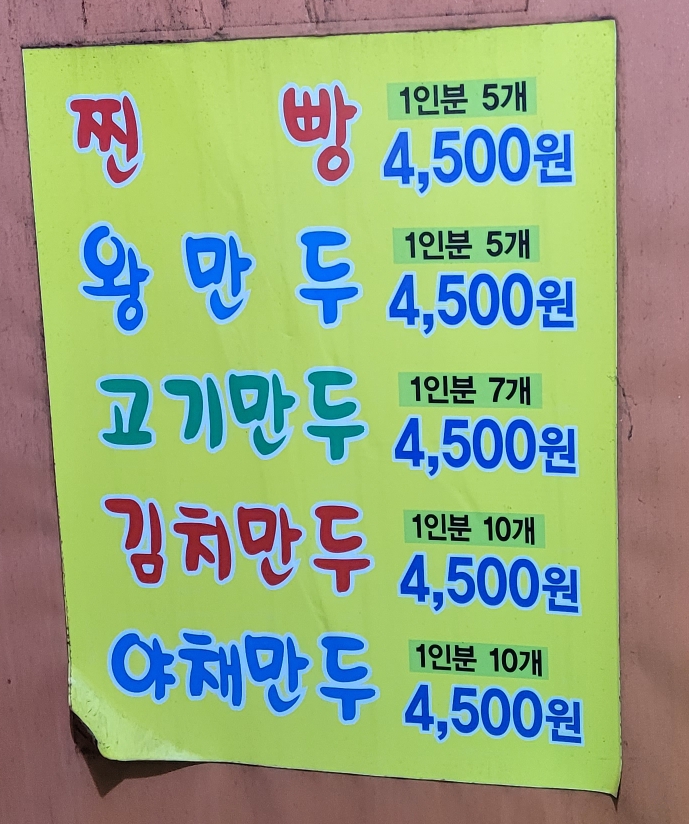 찐빵 1인분 5개
4,500원
왕만두 1인분 5개
4,500원
고기만두 1인분 7개
4,500원
김치만두 1인분 10개
4,500원
야채만두 1인분 10개
4,500원